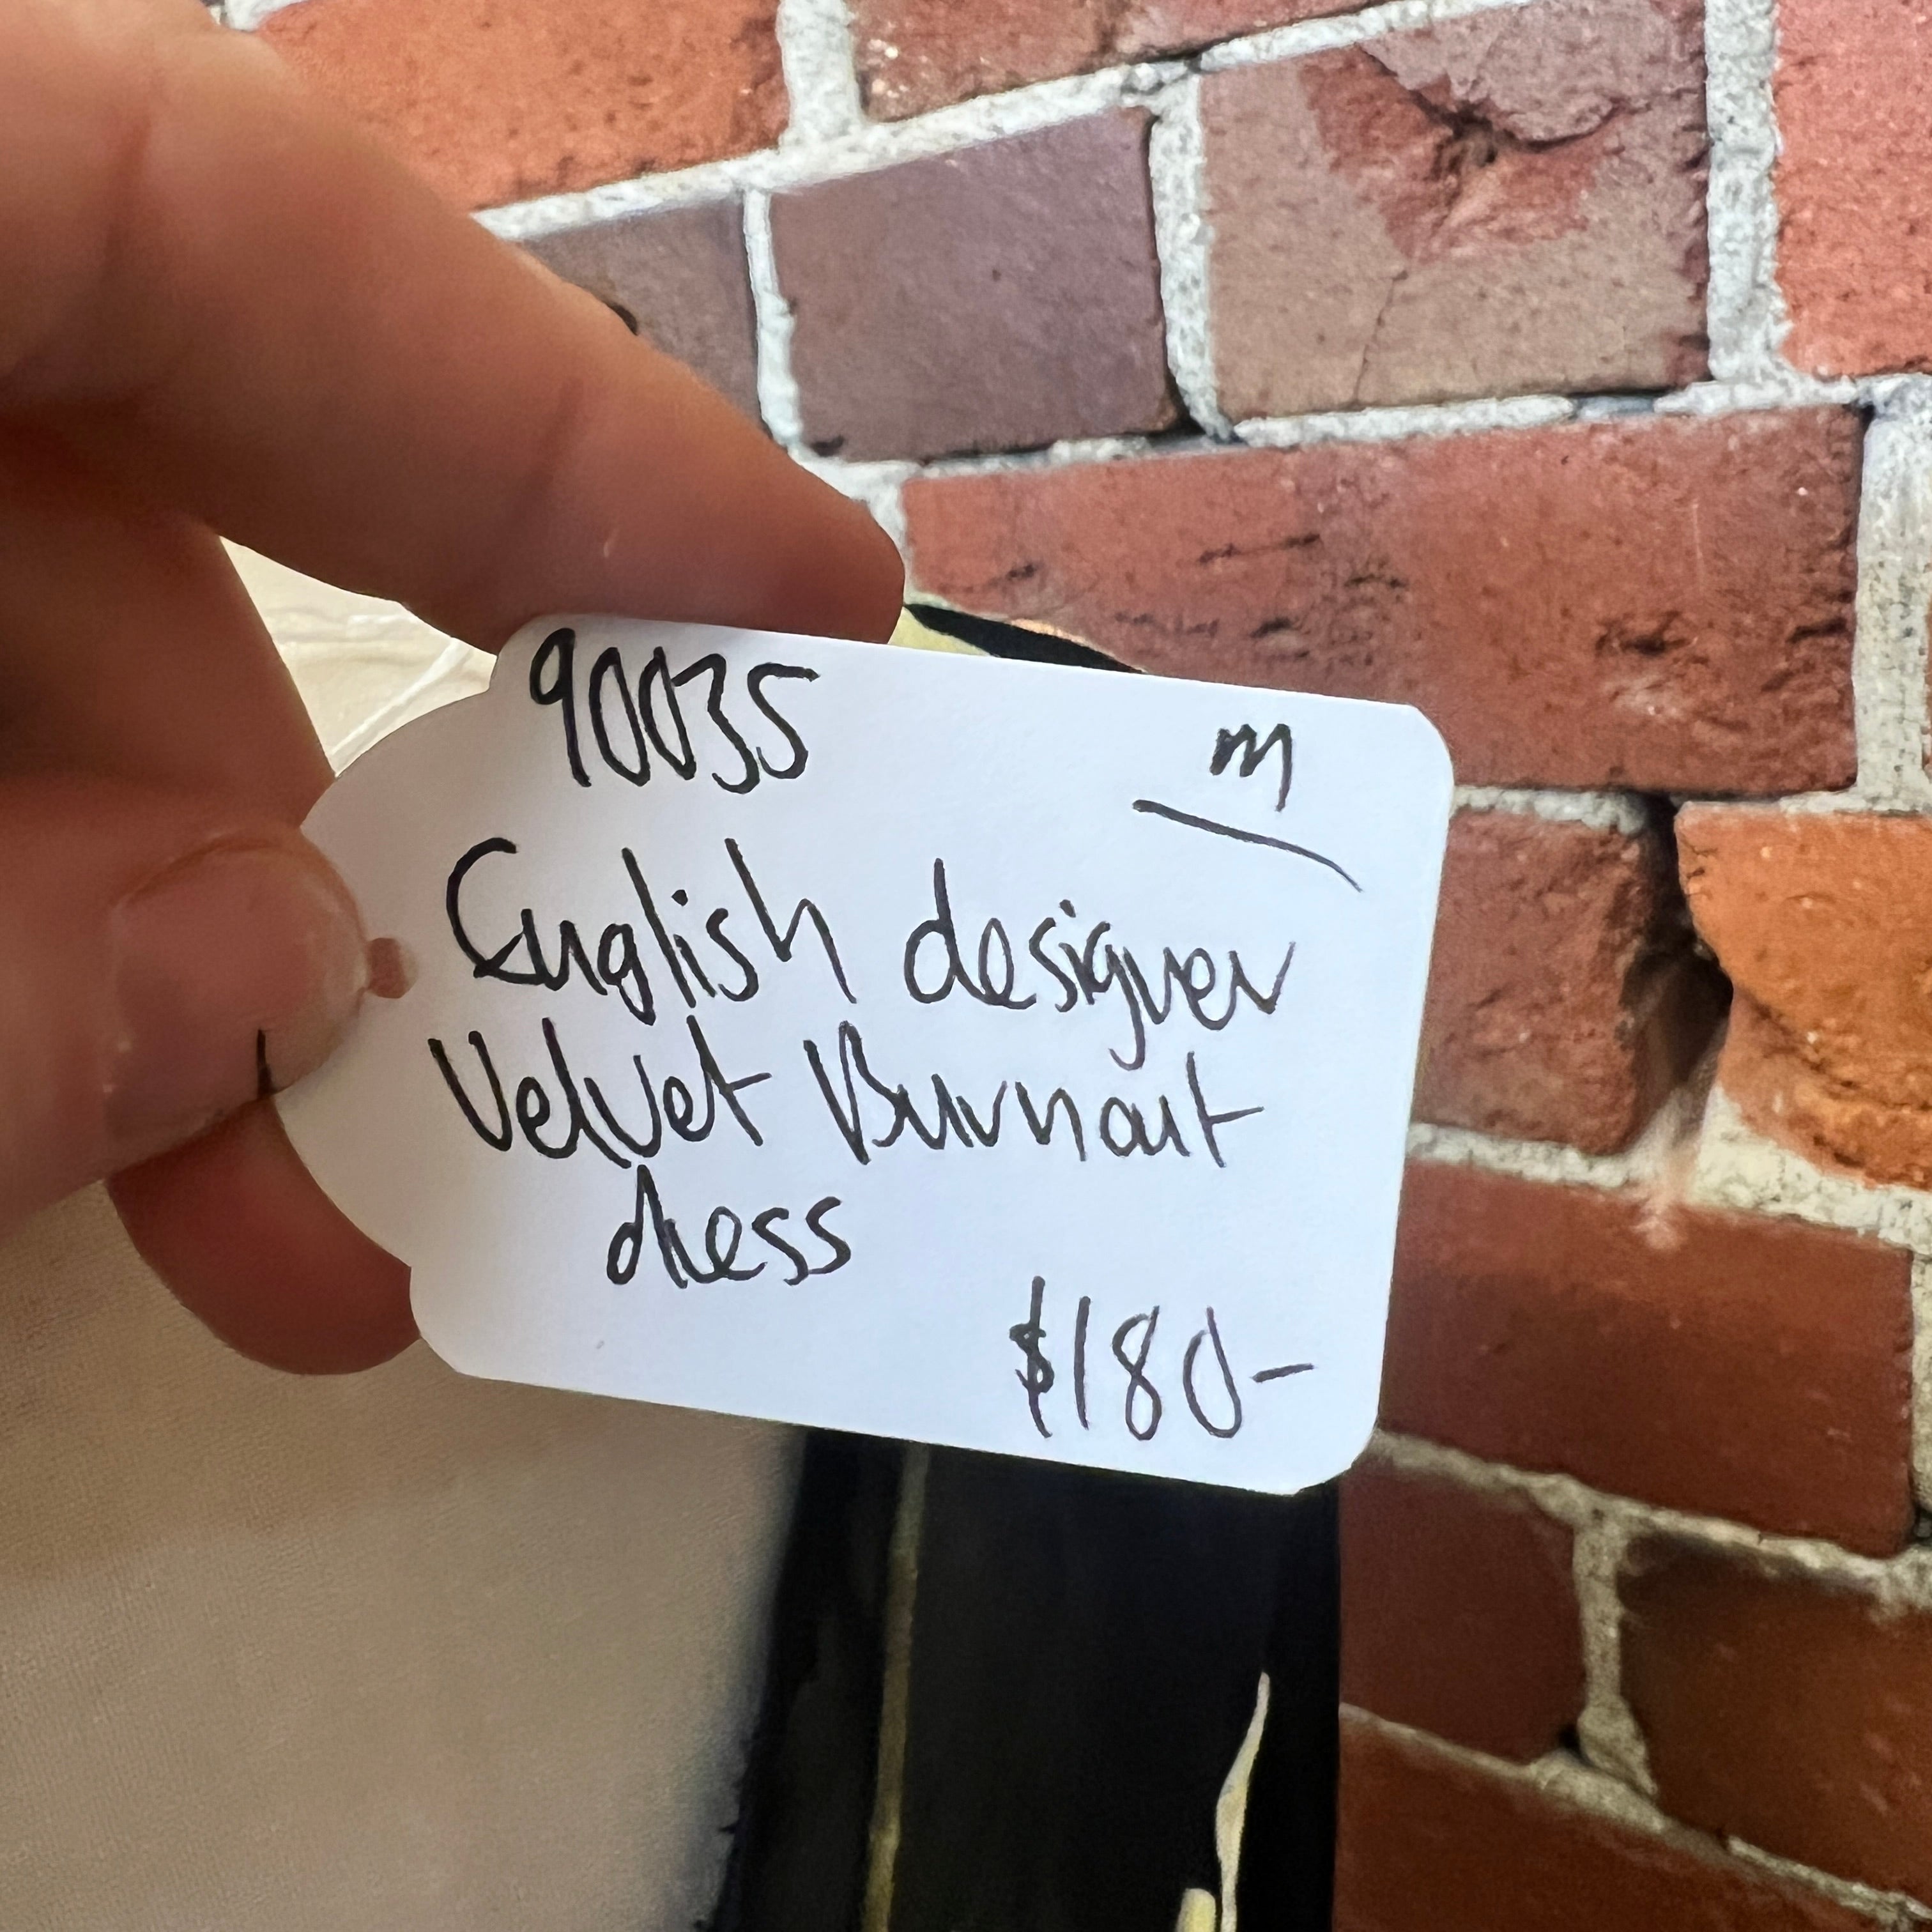 90035 m
English designer
Velvet Burnout
dress
$180-